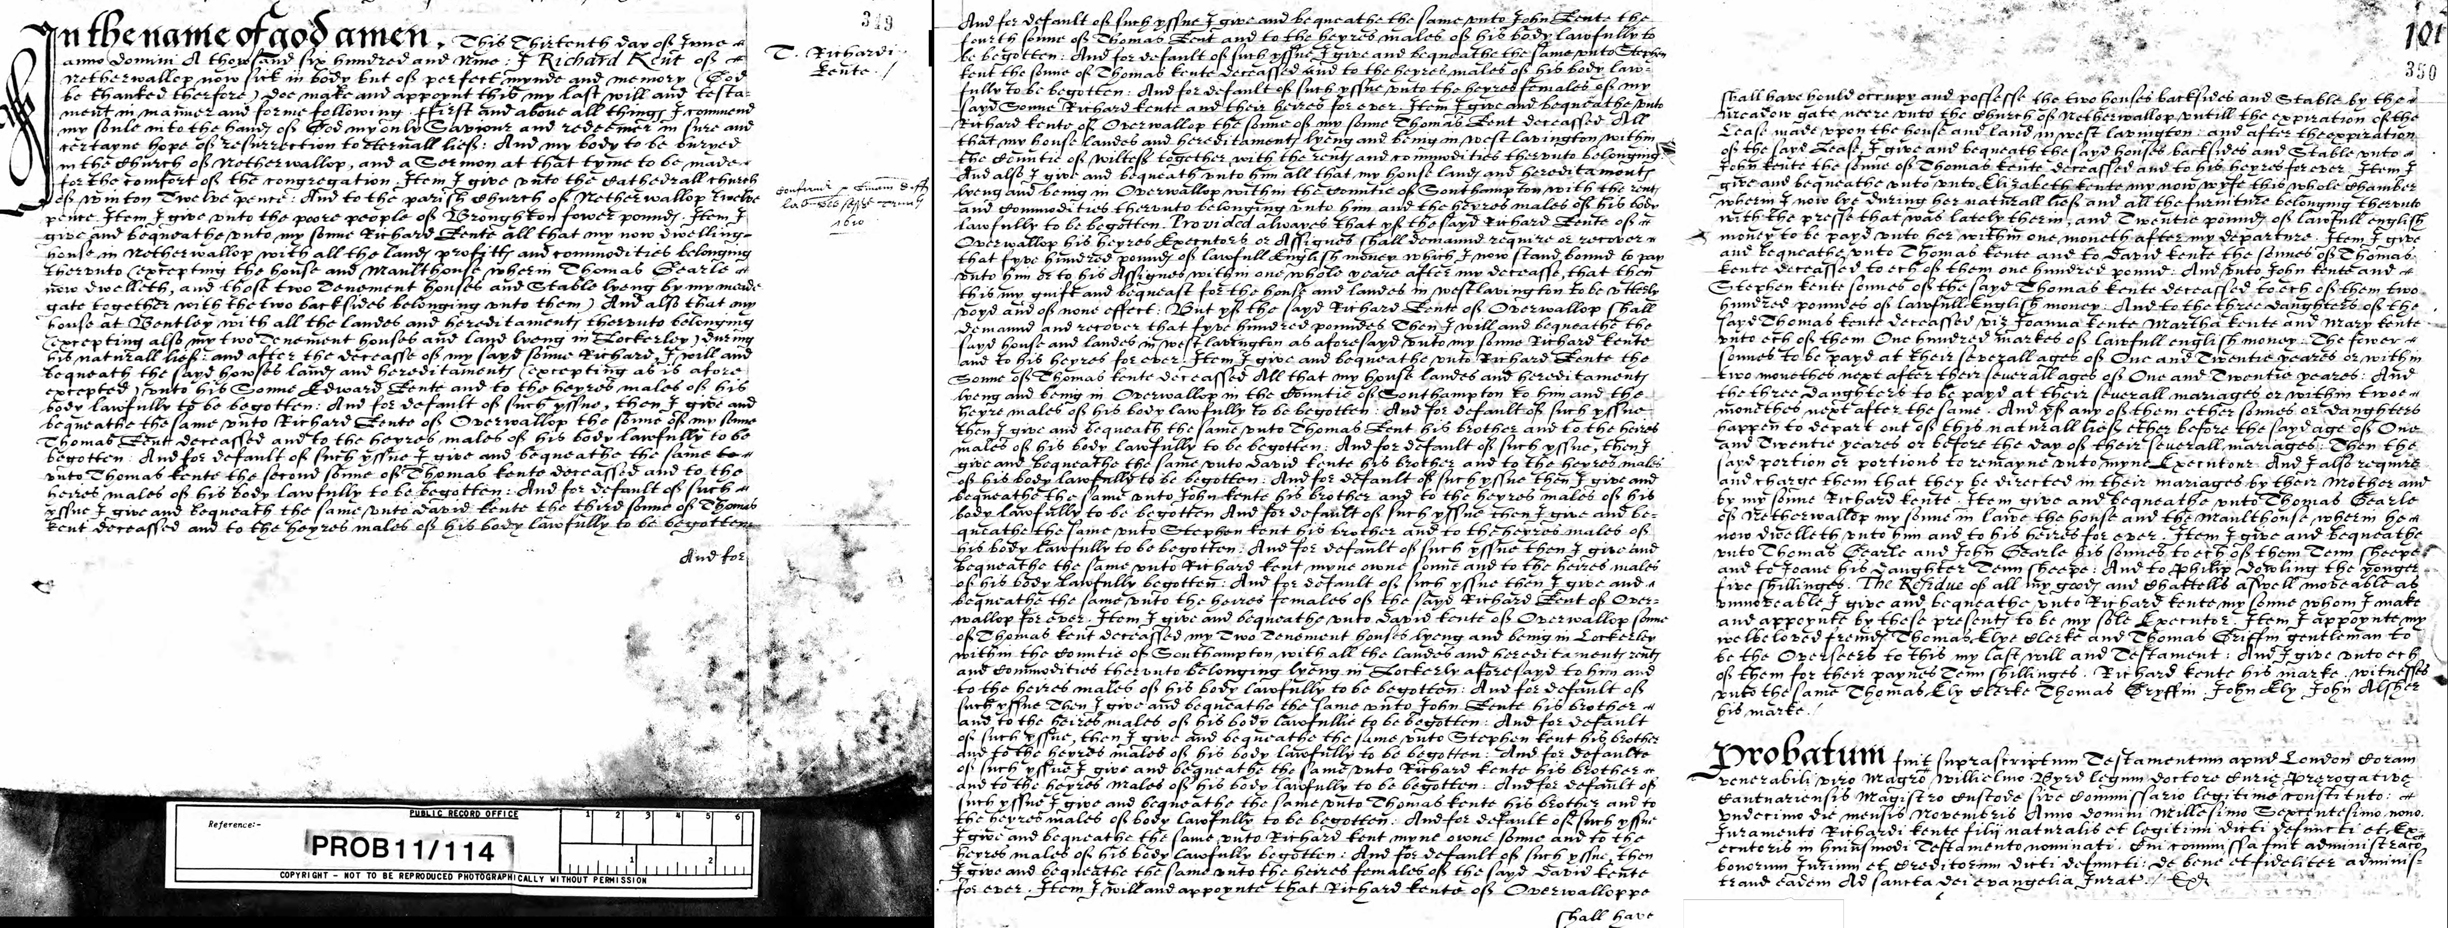 349
In the name of god amen, This Thirteenth day of June
anno domini A thowsand six hundred and Nine: I Richard Kent of
Netherwallop now sick in body but of perfect mynde and memory (God
be thanked therfore) doe make and appoynt this my last will and testa-
ment in manner and forme following. ffirst and above all things I commend
my soule into the hands of God my only Saviour and redeemer in sure and
certayne hope of resurrection to eternall lief: And my body to be buryed
in the Church of Netherwallop, and a Sermon at that tyme to be made
for the comfort of the congregation. Item I give unto the Cathedrall church
of winton Twelve pence: And to the parish Church of Netherwallop twelve
pence. Item I give unto the poore people of Broughton fower pounds. Item I
give and bequeathe unto my sonne Richard Kente all that my now dwelling
house in Netherwallop with all the lands profitts and commodities belonging
thervnto (excepting the house and Maulthouse wherin Thomas Gearle
now dwelleth, and those two Tenement houses and Stable lyeng by my meade
gate together with the two backsides belonging vnto them) And also that my
house at Bentley with all the landes and hereditaments thervnto belonging
(excepting also my two Tenement houses and land lyeng in Lockerley) during
his naturall lief: and after the deceasse of my sayd sonne Richard, I will and
bequeath the sayd howses lands and hereditaments (excepting as is afore
excepted) vnto his Sonne Edward Kente and to the heyres males of his
body lawfully to be begotten: And for default of such yssue, then I give and
bequeathe the same vnto Richard Kente of Overwallop the sonne of my sonne
Thomas Kent deceassed and to the heyres males of his body lawfully to be
begotten: And for default of such yssue I give and bequeathe the same
vnto Thomas kente the second sonne of Thomas kente deceassed and to the
heires males of his body lawfully to be begotten: And for default of such
yssue I give and bequeath the same vnto david kente the third sonne of Thomas
kent deceassed and to the heyres males of his body lawfully to be begotten
And for
T. Richardi
Kente./
1610
Reference:-
PUBLIC RECORD OFFICE
1 2 3 4 5 6
PROB 11/114
1 2
COPYRIGHT – NOT TO BE REPRODUCED PHOTOGRAPHICALLY WITHOUT PERMISSION
And for default of such yssue I give and bequeathe the same vnto John Kente the
fourth sonne of Thomas Kent and to the heyres males of his body lawfully to
be begotten: And for default of such yssue I give and bequeathe the same vnto Stephen
kent the sonne of Thomas kente deceassed and to the heyres males of his body law-
fully to be begotten: And for default of such yssue vnto the heyres females of my
sayd Sonne Richard kente and their heires for ever. Item I give and bequeathe vnto
Richard kente of Overwallop the sonne of my sonne Thomas Kent deceassed All
that my house landes and hereditaments lyeng and being in west lavington within
the Countie of wiltes together with the rents and commodities thervnto belonging
And also I give and bequeath vnto him all that my house lands and hereditaments
lyeng and being in Overwallop within the Countie of Southampton with the rents
and Commodities thervnto belonging vnto him and the heyres males of his body
lawfully to be begotten. Provided alwayes that yf the sayd Richard Kente of
Overwallop his heyres Executors or Assignes shall demaund require or recover
that fyve hundred pounds of lawfull English money which I now stand bound to pay
vnto him or to his Assignes within one whole yeare after my decease, that then
this my guift and bequeast for the house and landes in westlavington to be vtterly
voyd and of none effect: But yf the sayd Richard Kente of Overwallop shall
demaund and recover that fyve hundred poundes Then I will and bequeathe the
sayd house and landes in west lavington as aforesayd vnto my sonne Richard kente
and to his heyres for ever. Item I give and bequeathe vnto Richard Kente the
Sonne of Thomas kente deceassed All that my house landes and hereditaments
lyeng and being in Overwallop in the Countie of Southampton to him and the
heyre males of his body lawfully to be begotten: And for default of such yssue
then I give and bequeath the same vnto Thomas Kent his brother and to the heires
males of his body lawfully to be begotten: And for default of such yssue, then I
give and bequeathe the same vnto david kente his brother and to the heyres males
of his body lawfully to be begotten: And for default of such yssue then I give and
bequeathe the same vnto John kente his brother and to the heyres males of his
body lawfully to be begotten And for default of such yssue then I give and be-
queathe the same vnto Stephen kent his brother and to the heyres males of
his body lawfully to be begotten: And for default of such yssue then I give and
bequeathe the same vnto Richard kent myne owne sonne and to the heires males
of his body lawfully begotten: And for default of such yssue then I give and
bequeathe the same vnto the heires females of the sayd Richard Kent of Over-
wallop for ever. Item I give and bequeathe vnto david kente of Overwallop sonne
of Thomas kent deceassed my Two Tenement houses lyeng and being in Lockerley
within the Countie of Southampton with all the landes and hereditaments rents
and Commodities thervnto belonging lyeng in Lockerly aforesayd to him and
to the heires males of his body lawfully to be begotten: And for default of
such yssue Then I give and bequeathe the same vnto John Kente his brother
and to the heires males of his body lawfullie to be begotten: And for default
of such yssue, then I give and bequeathe the same vnto Stephen kent his brother
and to the heyres males of his body lawfully to be begotten: And for defaulte
of such yssue I give and bequeathe the same vnto Richard kente his brother
and to the heyres males of his body lawfully to be begotten: And for default of
such yssue I give and bequeathe the same vnto Thomas kente his brother and to
the heyres males of body lawfully to be begotten: And for default of such yssue
I give and bequeathe the same vnto Richard kent myne owne sonne and to the
heyres males of his body lawfully begotten: And for default of such yssue, then
I give and bequeathe the same vnto the heires females of the sayd david kente
for ever. Item I will and appoynte that Richard kente of Overwalloppe
shall have
101
350
shall have hould occupy and possesse the two houses backsides and Stable by the
meadow gate neere vnto the Church of Netherwallop vntill the expiration of the
Lease made vpon the house and land in west lavington: and after the expiration
of the sayd Lease, I give and bequeath the sayd houses backsides and Stable vnto
John kente the sonne of Thomas kente deceassed and to his heyres for ever. Item I
give and bequeathe vnto vnto Elizabeth kente my now wyfe this whole Chamber
wherin I now lye during her naturall lief and all the furniture belonging thervnto
with the presse that was lately therin, and Twentie pounds of lawfull english
money to be payd vnto her within one moneth after my departure. Item I give
and bequeathe vnto Thomas kente and to david kente the sonnes of Thomas
kente deceassed to ech of them one hundred pound: And vnto John kente and
Stephen kente sonnes of the sayd Thomas kente deceassed to ech of them two
hundred poundes of lawfull English money: And to the three daughters of the
sayd Thomas kente deceassed viz Joanna kente Martha kente and Mary kente
vnto ech of them One hundred markes of lawfull english money. The fower
sonnes to be payd at their severall ages of One and Twentie yeares or within
two monethes next after their severall ages of One and Twentie yeares: And
the three daughters to be payd at their severall mariages or within twoe
monethes next after the same. And yf any of them ether sonnes or daughters
happen to depart out of this naturall lief ether before the sayd age of One
and Twentie yeares or before the day of their severall mariages: Then the
sayd portion or portions to remayne vnto myne Executour: And I also require
and charge them that they be directed in their mariages by their Mother and
by my sonne Richard kente. Item give and bequeathe vnto Thomas Gearle
of Netherwallop my sonne in lawe the house and the Maulthouse wherin he
now dwelleth vnto him and to his heires for ever. Item I give and bequeathe
vnto Thomas Gearle and John Gearle his sonnes to ech of them Tenn sheepe
and to Joane his daughter Tenn sheepe: And to Philip dowling the yonger
five shillinges. The Residue of all my goods and Chattells aswell moveable as
vnmoveable I give and bequeathe vnto Richard kente my sonne whom I make
and appoynte by these presents to be my sole Executor. Item I appoynte my
welbeloved freinds Thomas Elye Clerke and Thomas Griffin gentleman to
be the Overseers to this my last will and Testament: And I give vnto ech
of them for their paynes Tenn shillinges. Richard kente his marke. witnesses
vnto the same Thomas Ely Clerke Thomas Gryffin. John Ely John Alsher
his marke./
Probatum fuit suprascriptum Testamentum apud London Coram
venerabili viro Magro Willielmo Byrd legum doctore Curie Prerogative
Cantuariensis Magistro Custode sive Commissario legitime constituto:
vndecimo die mensis Novembris Anno domini Millesimo Sexcentesimo nono.
Juramento Richardi kente filij naturalis et legitimi dicti defuncti et Ex-
ecutoris in huiusmodi Testamento nominati. Cui commissa fuit administraco
bonorum Jurium et Creditorum dicti defuncti: de bene et fideliter adminis-
trand eadem Ad sancta dei evangelia Jurat./ Exr